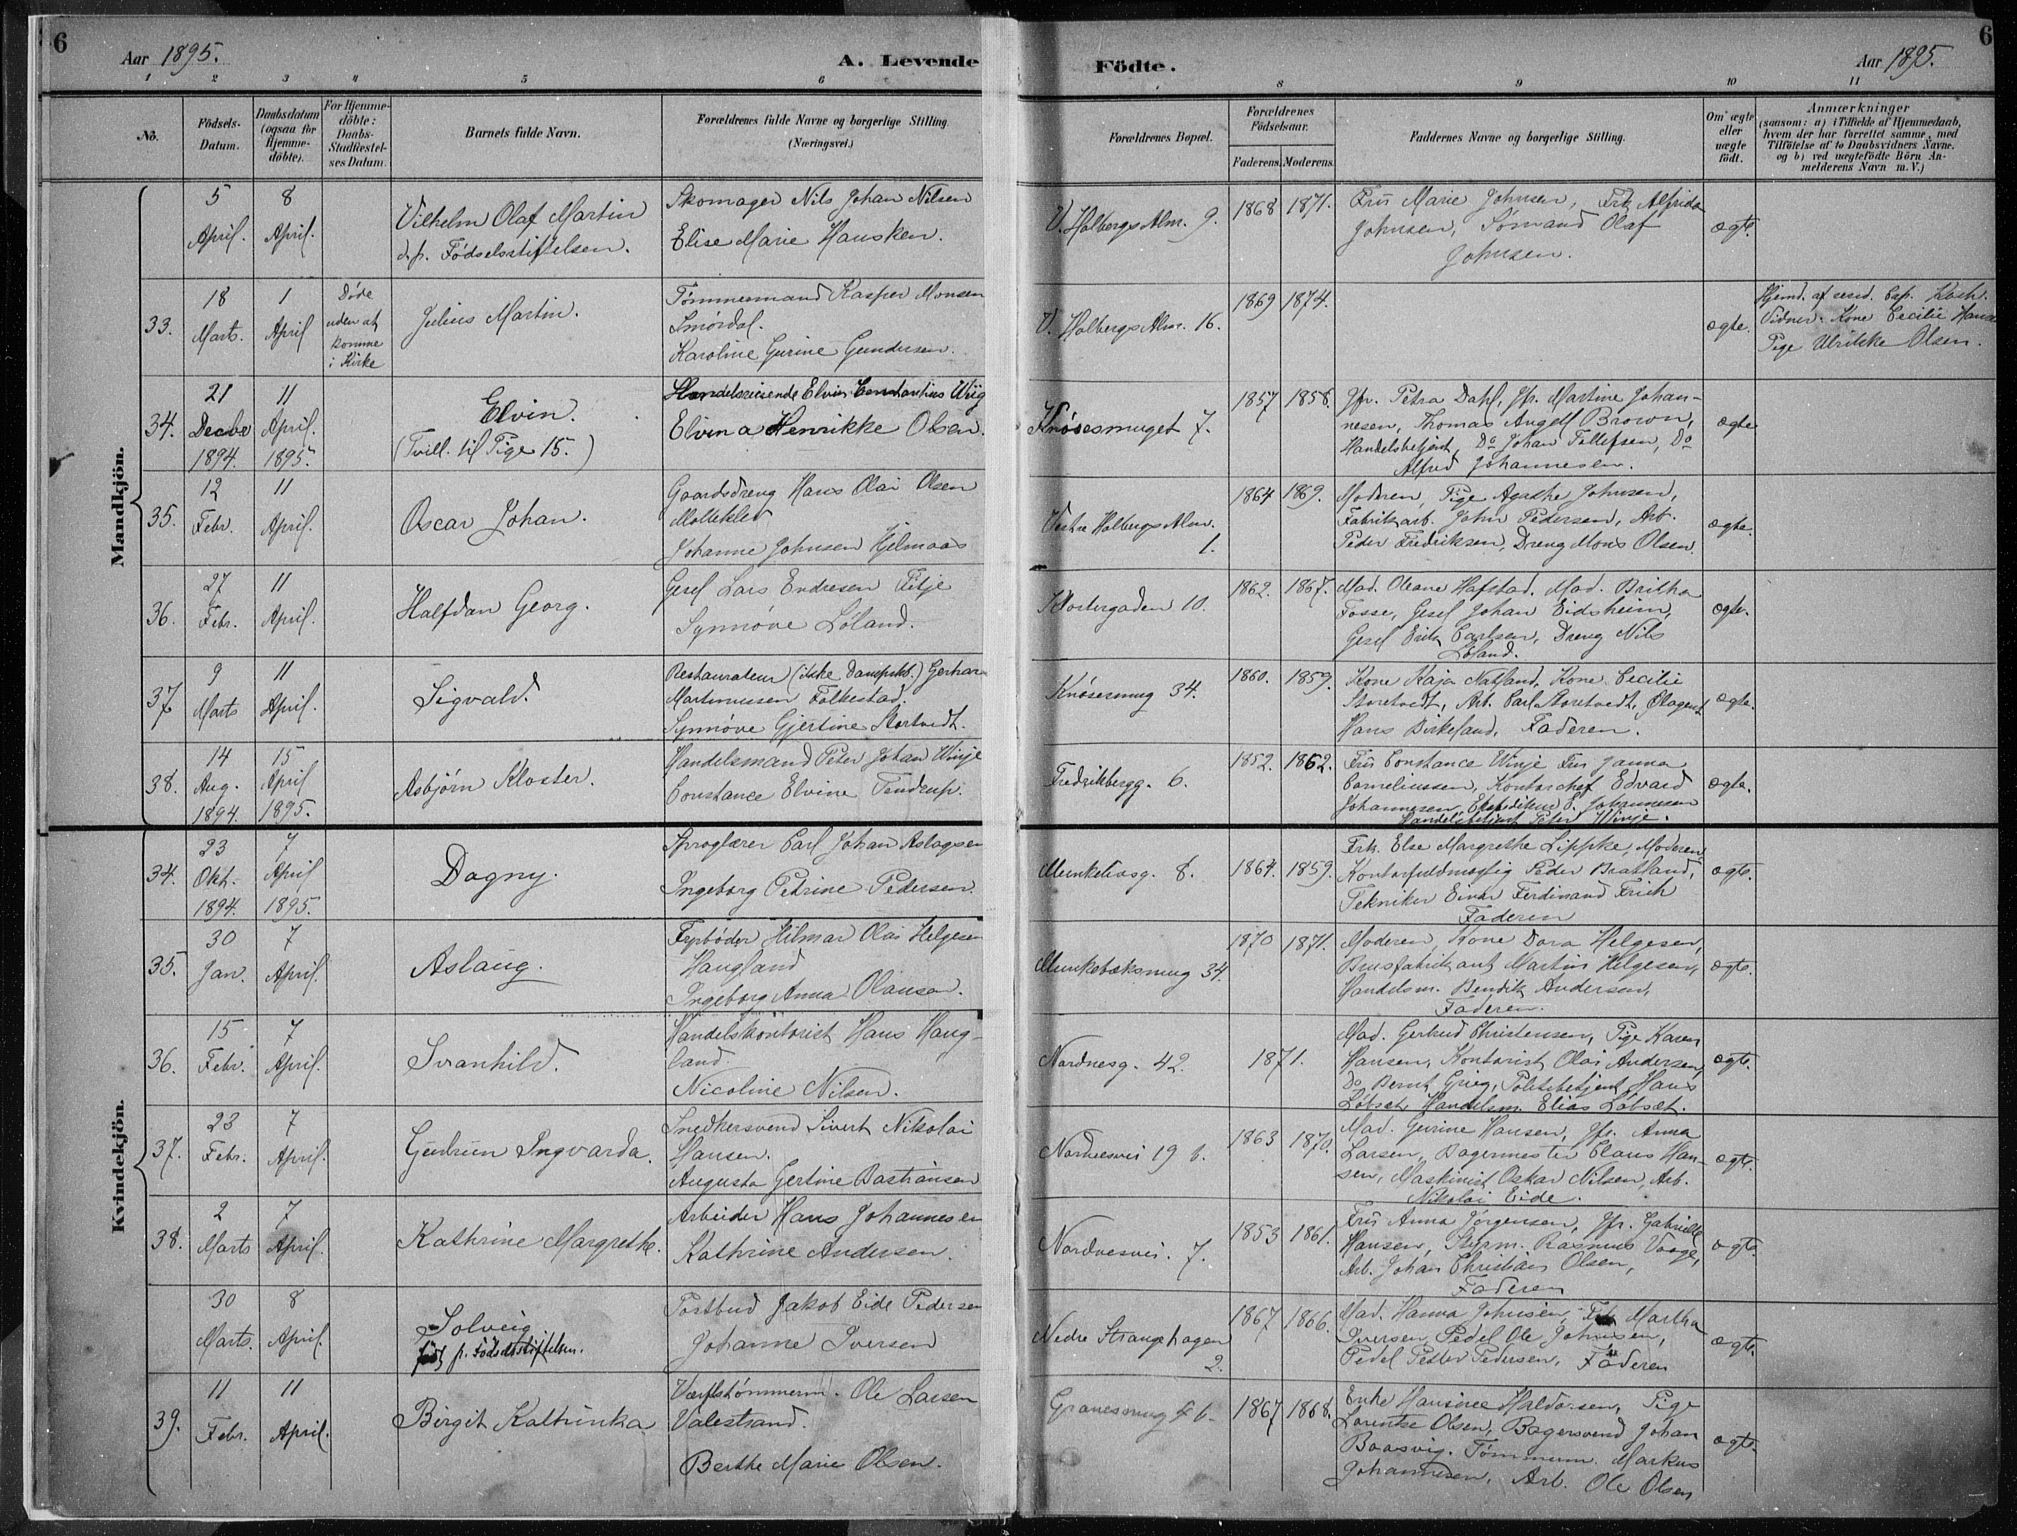 6
Aar 1895.
A. Levende
Födte.
Aar 1895.
6
1 2 3 4 5 6
8 9 10 11
No.
Födsels-Datum.
Daabsdatum (ogsaa for Hjemme-döbte).
For Hjemme-döbte: Daabs-Stadfæstel-ses Datum.
Barnets fulde Navn.
Forældrenes fulde Navne og borgerlige Stilling (Næringsvei.)
Forældrenes Bopæl.
Forældrenes Födselsaar.
Faderens. Moderens.
Faddernes Navne og borgerlige Stilling.
Om ægte eller uægte födt.
Anmærkninger
(saasom: a) i Tilfælde af Hjemmedaab,
hvem der har forrettet samme, med
Tilföielse af to Daabsvidners Navne.
og b) ved uægtefödte Börn An-
melderens Navn m. V.)
Mandkjön.
5 April. 8 April.
Vilhelm Olaf Martin
d. p. Fødselsstiftelsen.
Skomager Nils Johan Nilsen
Elise Marie Hausken.
V. Holbergs Alm. 9.
1868 1871.
Fru Marie Johnsen, Frk Alfrida
Johnsen, Sømand Olaf
Johnsen.
ægte.
33.
18 Marts. 1 April
Døde
uden at
komme
i Kirke
Julius Martin.
Tømmermand Kasper Monsen
Smørdal.
Karoline Gurine Gundersen.
V. Holbergs Alm. 16.
1869 1874.
ægte.
Hjemd. af resid. Cap. Koch.
Vidner. Kone Cecilie Hans
Pige Ulrikke Olsen.
34.
21 Decbr 1894. 11 April. 1895.
Elvin.
(Tvill. til Pige 15.)
Handelsreisende Elvin Constantius Wiig
Elvina Henrikke Olsen.
Knøsesmuget 7.
1857 1858.
Jfr. Petra Dahl, Jfr. Martine Johan-
nesen, Thomas Angell Brown,
Handelsbetjent, Do Johan Tollefsen, Do
Alfred Johannesen.
ægte
35.
12 Febr. 11 April.
Oscar Johan.
Gaardsdreng Hans Olai Olsen
Molleklev
Johanne Johnsen Hjelmaas
Vestre Holbergs Alm.
1.
1864 1869.
Moderen, Pige Agathe Johnsen,
Fabrikarb. John Pedersen, Arb.
Peder Fredriksen, Dreng Mons Olsen.
ægte.
36.
27 Febr. 11 April.
Halfdan Georg.
Gesel Lars Endresen Titje
Synnøve Løland.
Klostergaden 10.
1862. 1867.
Mad. Oleane Hafstad. Mad. Britha
Fosse, Gesel Johan Eidsheim,
Gesel Erik Carlsen, Dreng Nils
Løland.
ægte.
37
9 Marts 11 April.
Sigvald.
Restauratør (ikke Dampskib.) Gerhard
Martinussen Folkestad.
Synnøve Gjertine Stortvedt.
Knøsesmug 34.
1860. 1859.
Kone Kaja Natland. Kone Cecilie
Storetvedt, Arb. Carl Storetvedt, Ølagent
Hans Birkeland, Faderen.
ægte.
38.
14 Aug. 1894. 15 April 1895.
Asbjørn Kloster.
Handelsmand Peter Johan Winje
Constance Elvine Tendrup.
Fredrikbergg. 6.
1852. 1862.
Fru Constance Winje Fru Janna
Corneliussen, Kontorchef Edvard
Johannesen, Ekspeditrice S. Johannesen
Handelsbetjent Peter Winje.
ægte.
Kvindekjön.
34.
23 Okt. 1894. 7 April 1895.
Dagny.
Sproglærer Carl Johan Aslagsen
Ingeborg Petrine Pedersen.
Munkelivsg. 8.
1864. 1859.
Frk. Else Margrethe Lippke, Moderen
Kontorfuldmægtig Peder Bratland,
Tekniker Einar Ferdinand Erich
Faderen
ægte.
35.
30 Jan. 7 April.
Aslaug.
Fyrbøder Hilmar Olai Helgesen
Haugland
Ingeborg Anna Olausen.
Munkebæksmug 34.
1870 1871.
Moderen, Kone Dora Helgesen,
Brusfabrikant Martin Helgesen,
Handelsm. Bendik Andersen,
Faderen.
ægte.
36.
15 Febr. 7 April.
Svanhild.
Handelskontorist Hans Haug-
land.
Nicoline Nilsen.
Nordnesg. 42.
1871.
Mad. Gertrud Christensen, Pige Karen
Hansen, Kontorist Olai Andersen,
Do Bernt Grieg, Politibetjent Hans
Løbset, Handelsm. Elias Løbset.
ægte.
37.
23 Febr. 7 April.
Gudrun Ingvarda.
Snedkersvend Sivert Nikolai
Hansen.
Augusta Gertine Bastiansen
Nordnesvei 19 b.
1863 1870.
Mad. Gurine Hansen, Jfr. Anna
Larsen, Bagermester Claus Han-
sen, Maskinist Oskar Nilsen, Arb.
Nikolai Eide.
ægte.
38.
2 Marts 7 April.
Kathrine Margrethe.
Arbeider Hans Johannesen
Kathrine Andersen.
Nordnesvei. 7.
1853 1861.
Fru Anna Jørgensen, Jfr. Gabrielle
Hansen, Styrm. Rasmus Vaage,
Arb. Johan Christian Olsen,
Faderen
ægte.
30 Marts. 8 April.
Solveig
født p. Fødselsstiftelsen.
Postbud Jakob Eide Pedersen
Johanne Iversen
Nedre Strangehagen
2.
1867 1866.
Mad. Hanna Johnsen, Frk Martha
Iversen, Pedel Ole Johnsen,
Pedel Peder Pedersen, Faderen
ægte.
39.
11 Febr. 11 April.
Birgit Kathinka
Værftstømmerm. Ole Larsen
Valestrand.
Berthe Marie Olsen.
Granesmug 6
1867 1868.
Enke Hansine Haldorsen, Pige
Lorentze Olsen, Bagersvend Johan
Baasvig. Tømmerm. Markus
Johannesen, Arb. Ole Olsen
ægte.